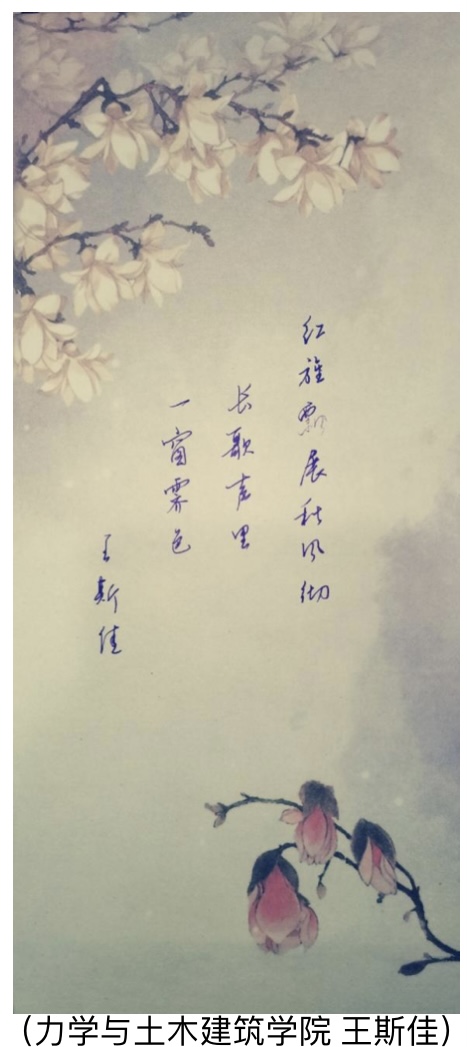 红旌飘展秋风彻
长歌声里
一窗霁色
王斯佳
（力学与土木建筑学院 王斯佳）